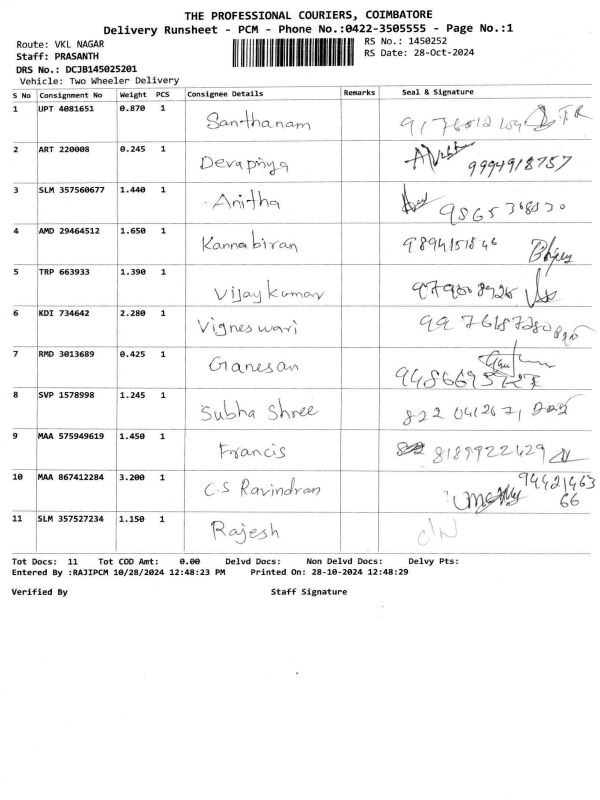 THE PROFESSIONAL COURIERS, COIMBATORE
Delivery Runsheet - PCM - Phone No.:0422-3505555 - Page No.:1
Route: VKL NAGAR
RS No.: 1450252
Staff: PRASANTH
RS Date: 28-Oct-2024
DRS No.: DCJB145025201
Vehicle: Two Wheeler Delivery
S No Consignment No Weight PCS Consignee Details Remarks Seal & Signature
1 UPT 4081651 0.870 1 Santhanam
2 ART 220008 0.245 1 Devapriya 9994918757
3 SLM 357560677 1.440 1 Anitha
4 AMD 29464512 1.650 1 Kannabiran 9894151846
5 TRP 663933 1.390 1 Vijaykumar
6 KDI 734642 2.280 1 Vigneswari
7 RMD 3013689 0.425 1 Ganesan
8 SVP 1578998 1.245 1 Subha Shree
9 MAA 575949619 1.450 1 Francis 8189922429
10 MAA 867412284 3.200 1 C.S Ravindran 94421463
66
11 SLM 357527234 1.150 1 Rajesh
Tot Docs: 11 Tot COD Amt: 0.00 Delvd Docs: Non Delvd Docs: Delvy Pts:
Entered By :RAJIPCM 10/28/2024 12:48:23 PM Printed On: 28-10-2024 12:48:29
Verified By Staff Signature